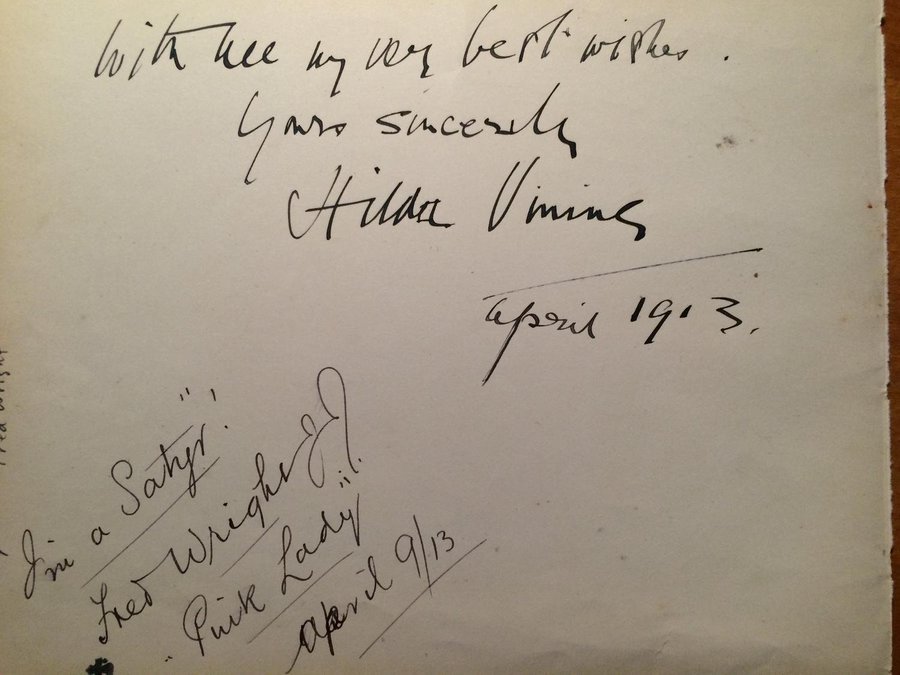 With all my very best wishes.
Yours sincerely
Hilda Vining
April 1913.
I'm a Satyr"!
Fred Wright Jr.
"Pink Lady"
April 9/13
Fred Wright